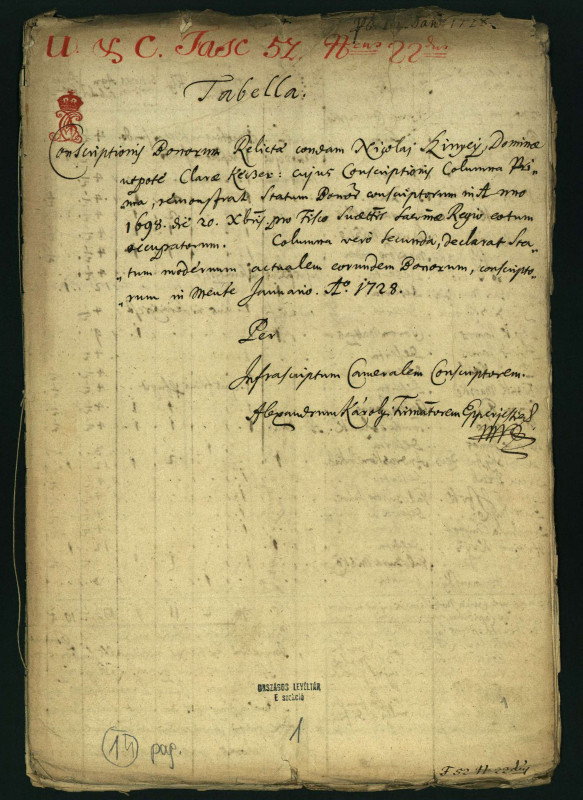 U. & C. Fasc 52. Nrus 22dus
Tabella.
Conscriptionis Bonorum Relictae condam Nicolaj Szinyej, Dominae
utpotè Clarae Keczer: cujus Conscriptionis Columna Pri„
„ma, rémonstrat Statum Bonor conscriptorum in Anno
1698. die 20. Xbris. pro Fisco Suae Mttis Sacrae Regio eotum
occupatorum. Columna verò secunda, declarat Sta„
„tum modernum actualem eorundem Bonorum, conscripto„
„rum in Mense Januario. Aõ. 1728.
Per
Infrascriptum Cameralem Conscriptorem.
Alexandrum Károly
ORSZÁGOS LEVÉLTÁR
E szekció
1
1
14 pag.